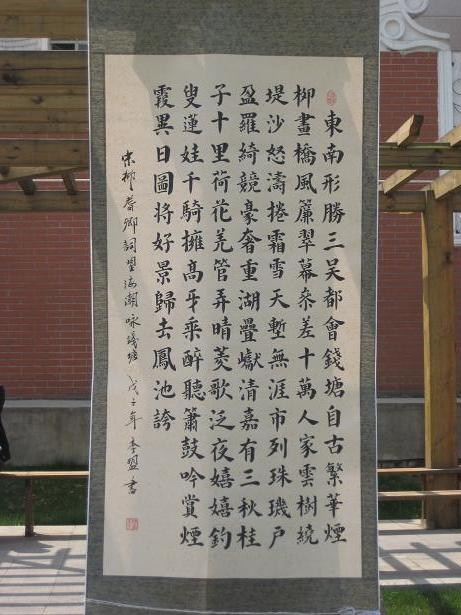 東南形勝三吳都會錢塘自古繁華煙
柳畫橋風簾翠幕參差十萬人家雲樹繞
堤沙怒濤捲霜雪天塹無涯市列珠璣戶
盈羅綺競豪奢重湖疊巘清嘉有三秋桂
子十里荷花羌管弄晴菱歌泛夜嬉嬉釣
叟蓮娃千騎擁高牙乘醉聽簫鼓吟賞煙
霞異日圖將好景歸去鳳池誇
宋柳耆卿詞望海潮詠錢塘 戊子年 李盟書